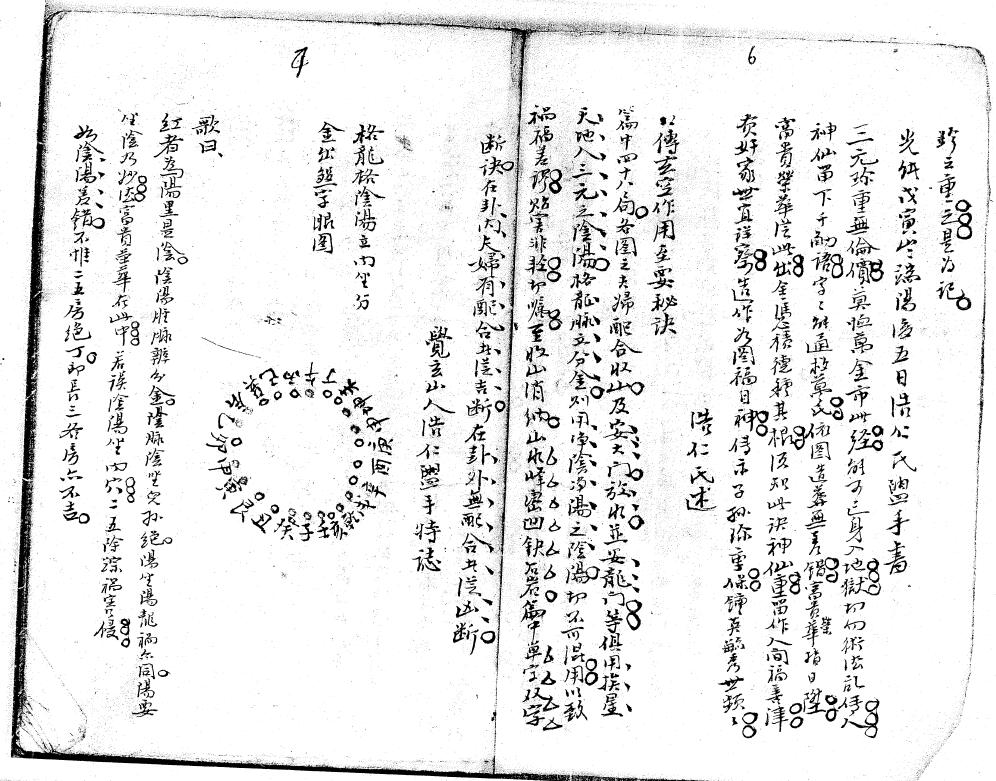 6
珍之重之是为記
光緒戊寅岁端陽後五日浩仁氏盥手書
三元珍重無倫價莫恤萬金市此经能可亡身入地獄切勿術法乱傳人
神仙留下千融語字字能通格萬民依图造葬無差錯富貴榮華指日陞
富貴榮華從此出全憑積德種其根須知此訣神仙重留作人间福壽津
贲好家世宜詳察造作为图福日神传示子孙珍重保鍾英毓秀世類
浩仁氏述
傳玄空作用至要秘訣
篇中四十八局各图之夫婦配合收山及安大門放水並安龍門等俱用挨星
天地人三元之陰陽格龍脉立分金则用净陰净陽之陰陽切不可混用以致
禍福差謬贻害非轻切嘱至收山消纳山水峰峦凹缺石岩篇中单字双字
断訣在卦内夫婦有配合共從吉断在卦外無配合共從凶断
覺玄山人浩仁盥手特誌
7
格龍格陰陽立内坐分
金出盤字眼图
丙午丁未坤申庚酉辛戌乾亥壬子癸丑艮寅甲卯乙辰巽巳
歌曰
红者為陽黑是陰陰陽脈辨分金陰脉陰坐兒孙絕陽坐陽龍禍亦同陽要
坐陰为妙丞富貴壹華在此中若误陰陽坐内穴二五除踪禍害侵
如陰陽差错不惟二五房绝丁即長三各房亦不吉